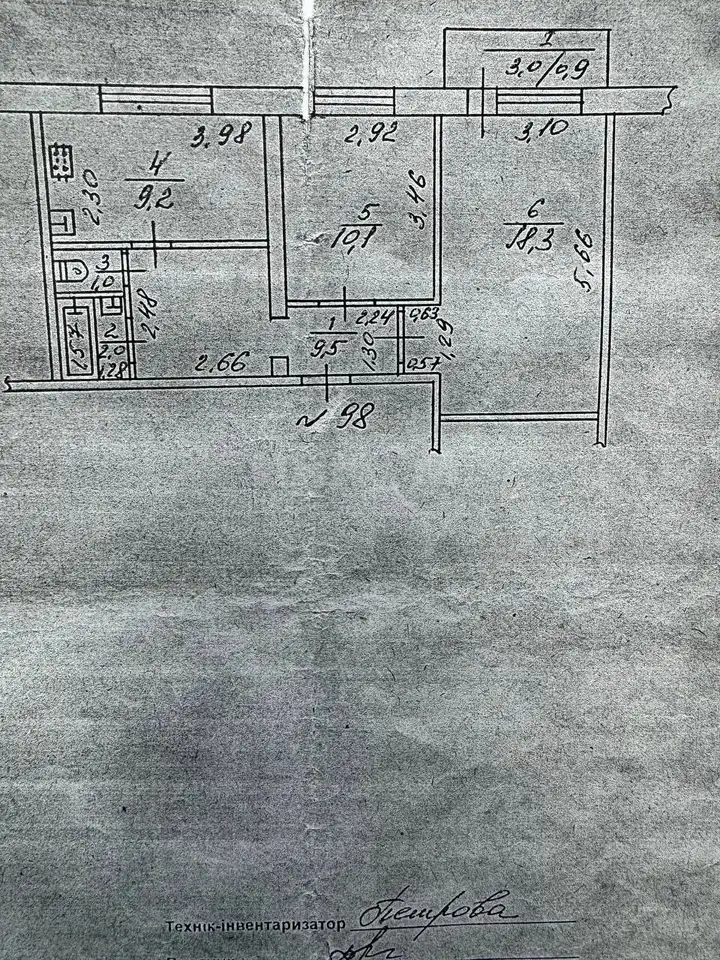 I
3,0/0,9
3.98
2,92
3,10
4
9,2
2,30
5
10,1
3,46
6
18,3
5,66
3
1,0
2,48
1,57
2
2,0
1,28
2.66
1
9,5
2,24
1,30
0,63
1,29
0,57
№ 98
Технік-інвентаризатор Петрова